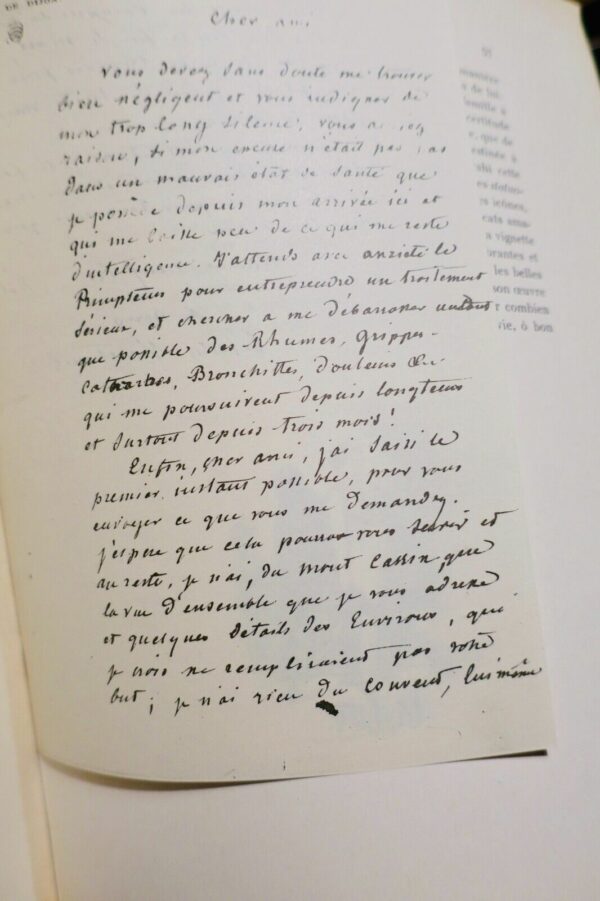 DE DIJON
Cher ami
Vous devez sans doute me trouver
bien négligent et vous indigner de
mon trop long silence, vous a
raison, si mon encure n'était pas
dans un mauvais état de santé que
je possède depuis mon arrivée ici et
qui me laisse peu de ce qui me reste
d'intelligence. J'attends avec anxiété le
Printems pour entreprendre un traitement
Sérieux, et chercher a me débarasser
que possible des Rhumes, Grippes-
Catharres, Bronchittes, Douleurs &c.
qui me poursuivent depuis longtems
et surtout depuis trois mois!
Enfin, cher ami, j'ai saisi le
premier instant possible, pour vous
envoyer ce que vous me demandez.
j'espère que cela pourra vous servir et
au reste, je n'ai, du Mont Cassin, que
la vue d'ensemble que je vous adresse
et quelques Détails des Environs, que
je crois ne rempliraient pas votre
but; je n'ai rien du Couvent, lui même
certitude
, que de
cette
icônes,
vignette
orantes et
les belles
son œuvre
r combien
vie, ô bon